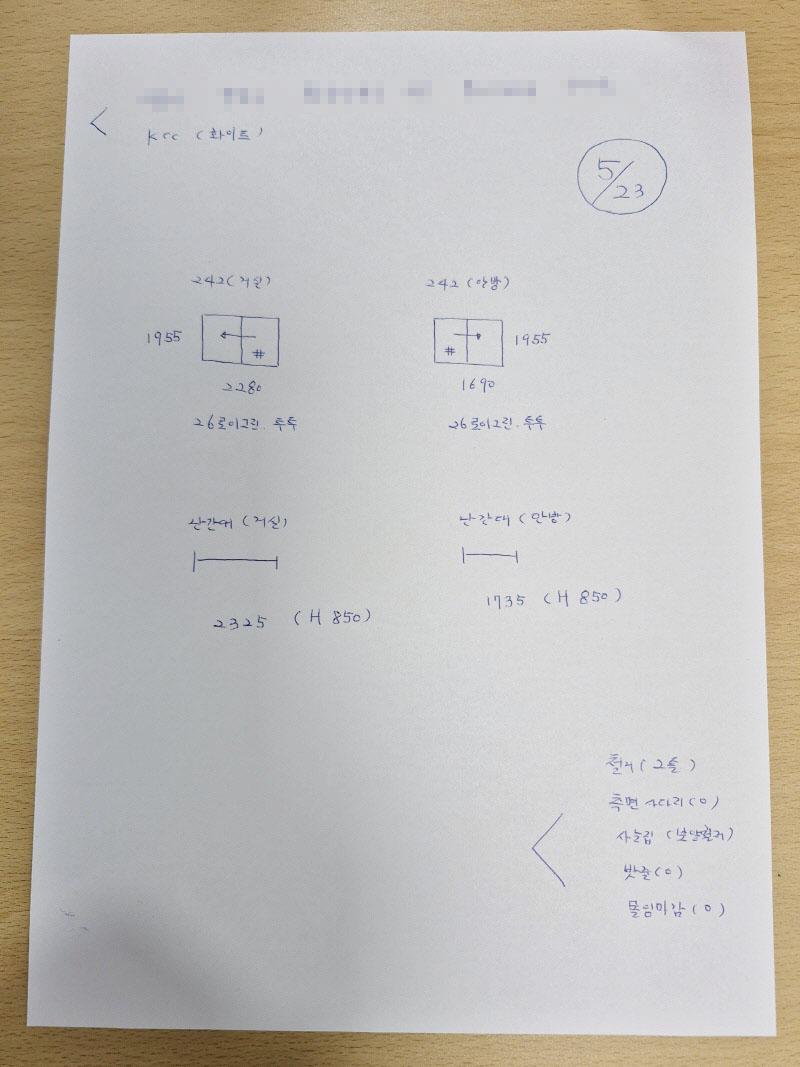 KCC (화이트)
5/23
242(거실)
242 (안방)
1955
#
#
1955
2280
1690
26로이그린. 투투
26로이그린. 투투
난간대 (거실)
난간대 (안방)
2325 (H 850)
1735 (H 850)
철거 (2층)
측면 사다리 (O)
밧줄 (O)
몰딩마감 (O)